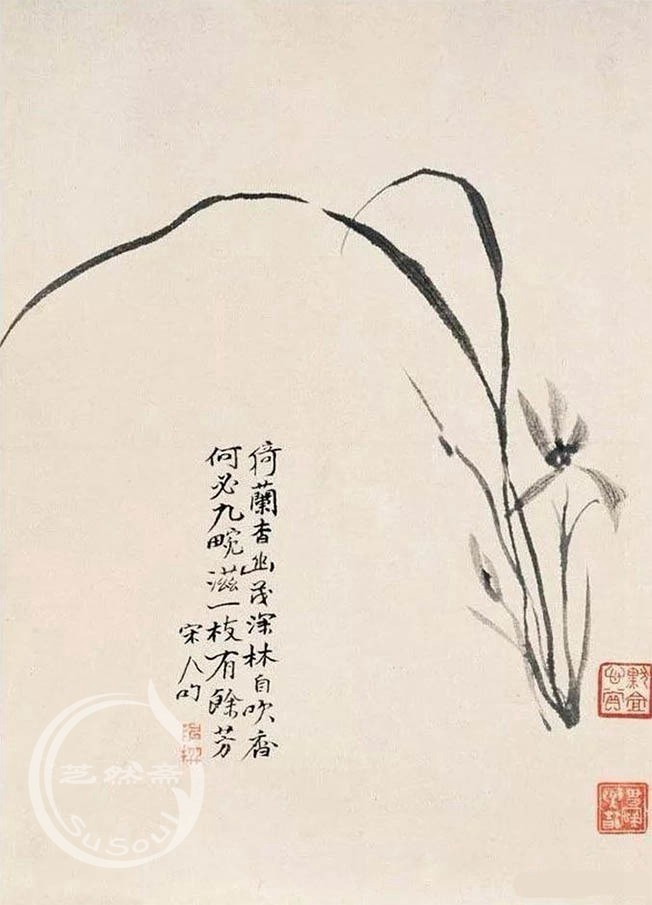 猗蘭杳幽茂深林自吹香
何必九畹滋一枝有餘芳
宋人
芝然斋
SuSoul